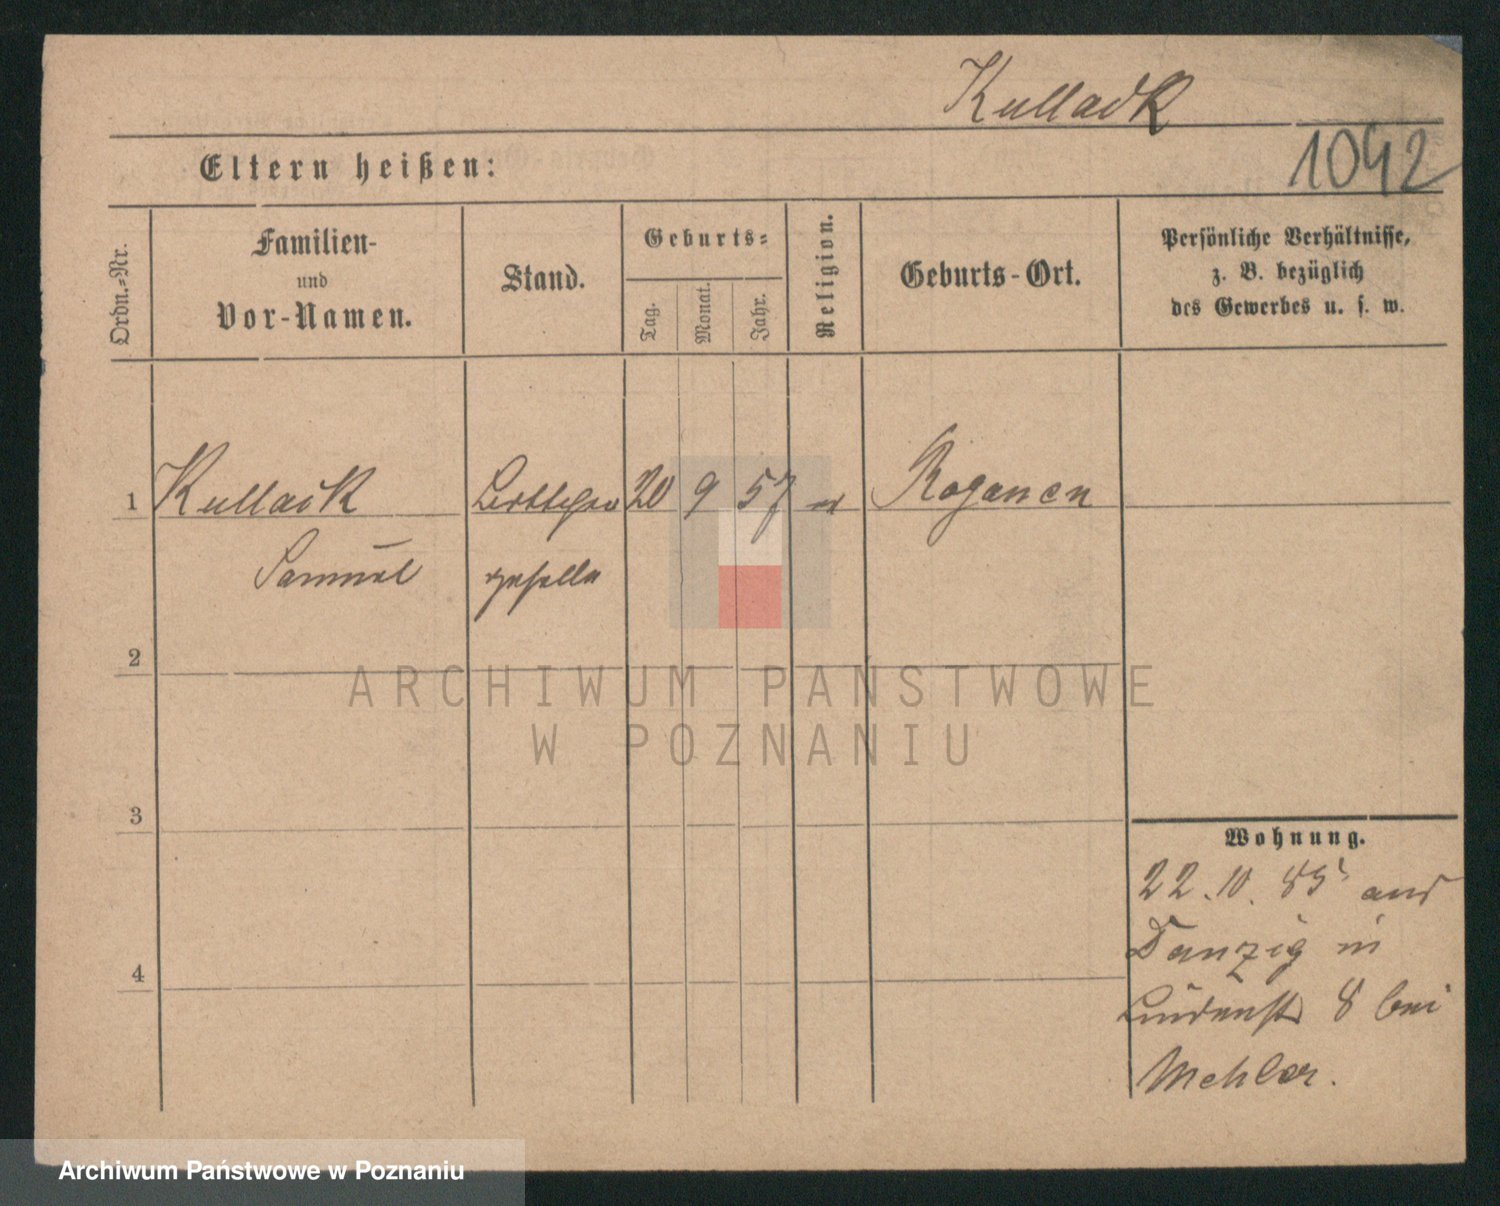 Kullack
1042
Eltern heißen:
Ordn.-Nr.
Familien-
und
Vor-Namen.
Stand.
Geburts-
Tag.
Monat.
Jahr.
Religion.
Geburts-Ort.
Persönliche Verhältnisse,
z. B. bezüglich
des Gewerbes u. s. w.
1 Kullack 20 9 57
Samuel geselle
2
3
4
Wohnung.
22.10.85 aus
Danzig in
8 bei
Mehler.
ARCHIWUM PAŃSTWOWE
W POZNANIU
Archiwum Państwowe w Poznaniu